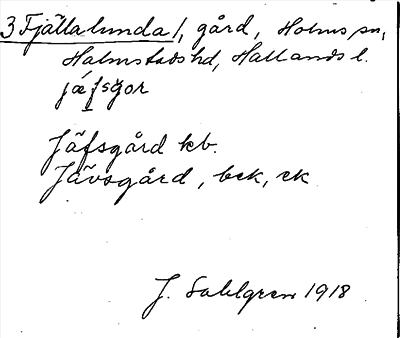 3 Fjällalunda/, gård, Holms sn,
Halmstads hd, Hallands l.
jæ´fsgor
Jäfsgård kb.
Jävsgård, bck, ck
J. Sahlgren 1918